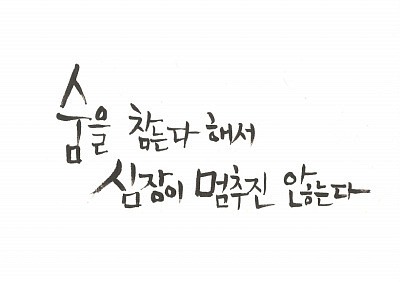 숨을 참는다 해서
심장이 멈추진 않는다